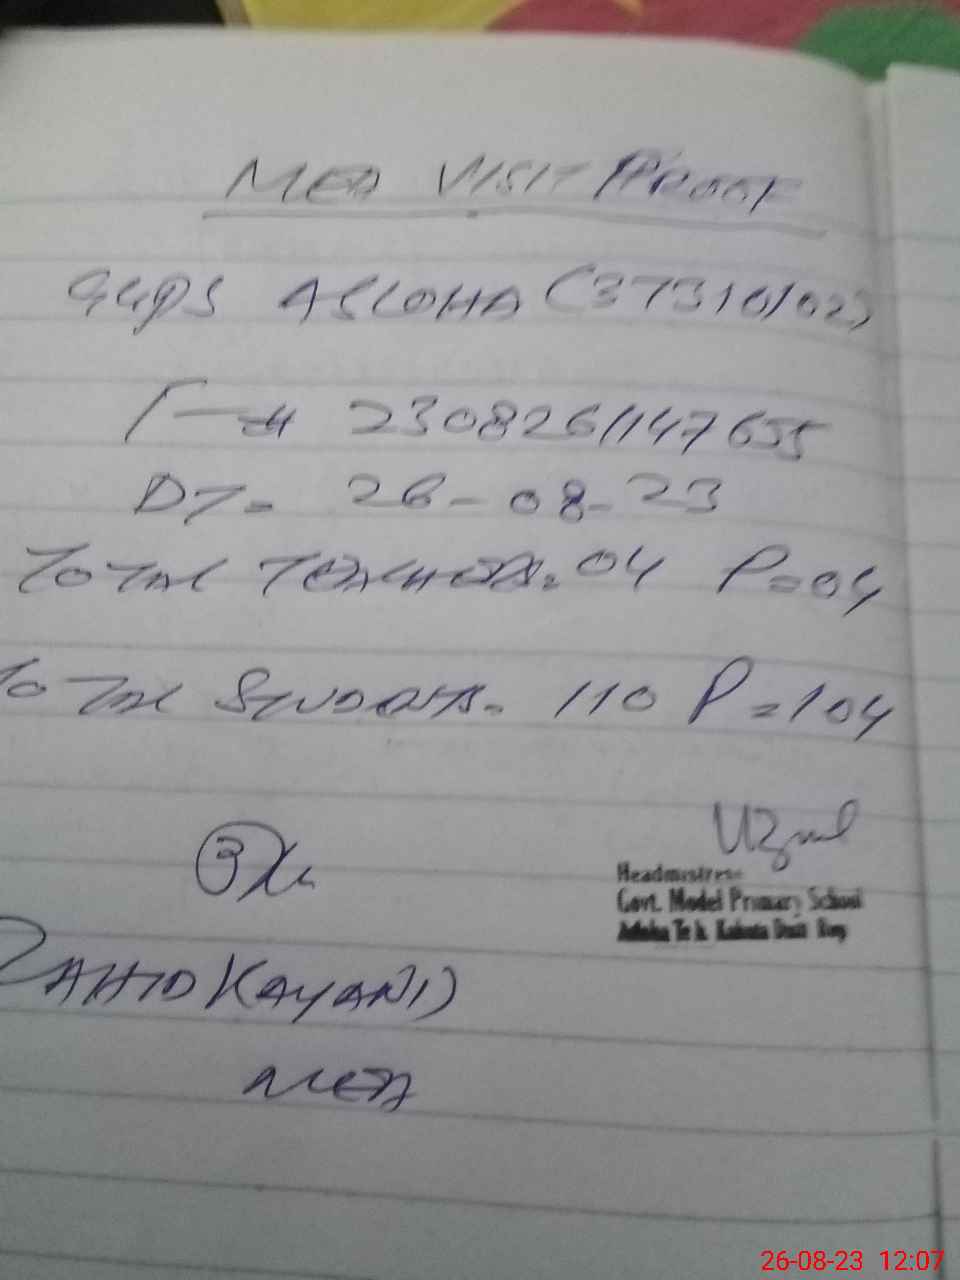 MEA VISIT PROOF
GGPS ASLOHA (37310102)
T-# 2308261147655
DT= 26-08-23
TOTAL TEACHERS= 04 P=04
TOTAL STUDENTS= 110 P=104
Headmistress
Govt. Model Primary School
Teh Kahuta Distt Rwp
ZAHID KAYANI)
MEA
26-08-23 12:07